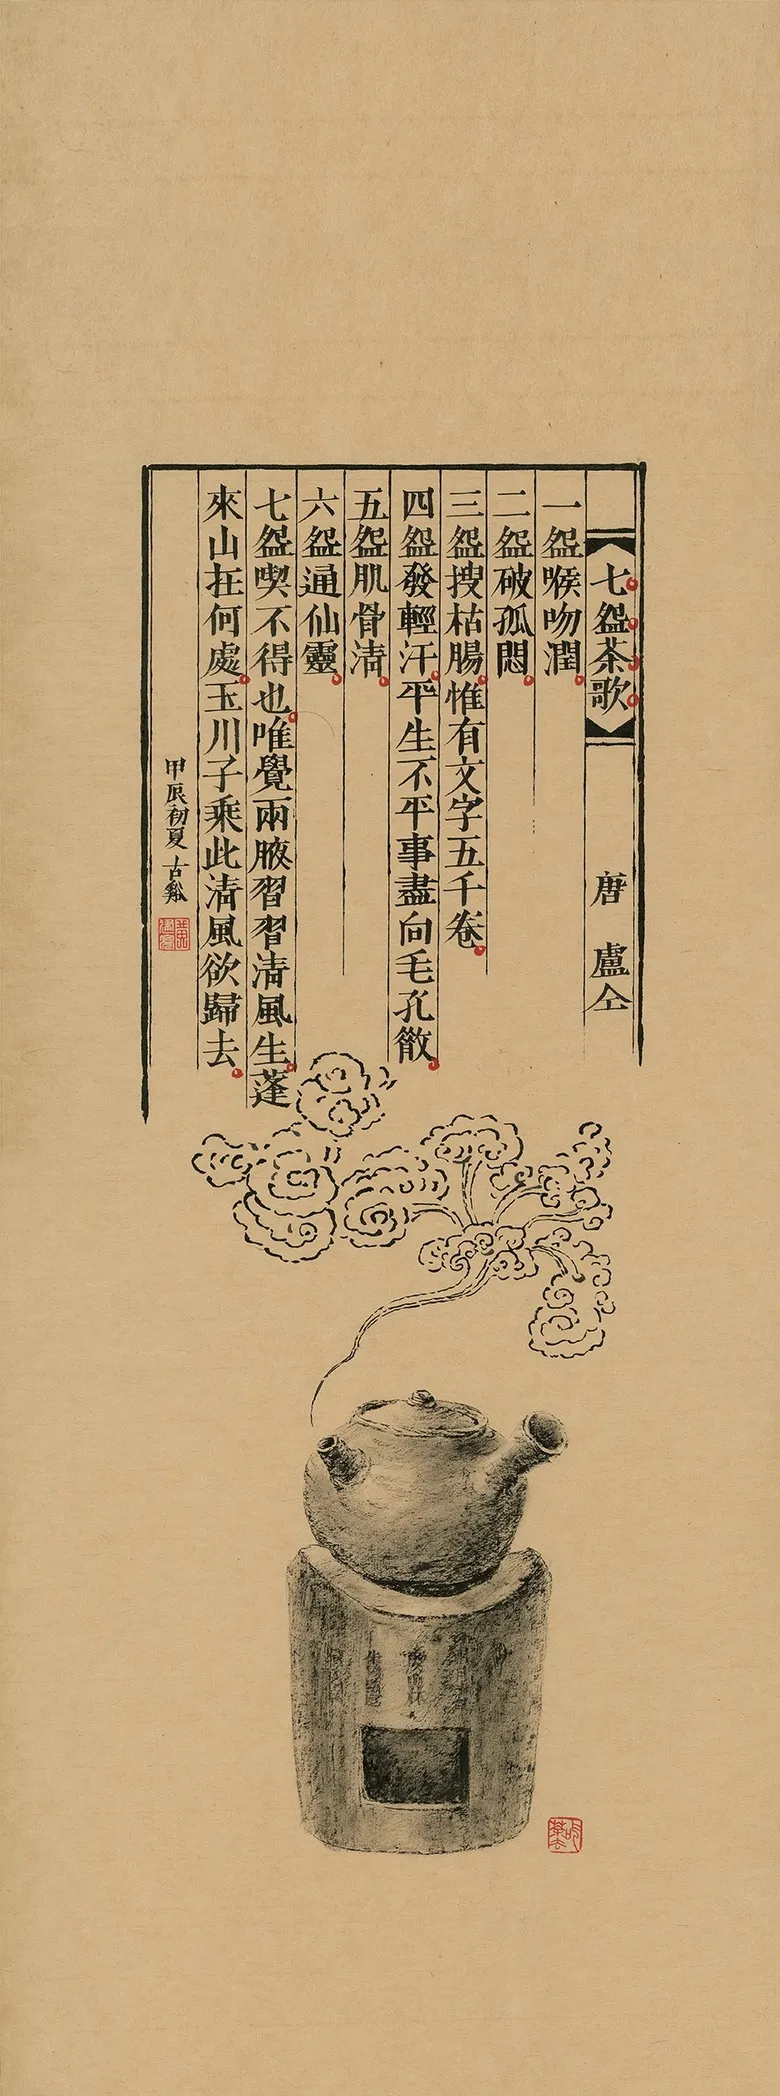 七盌茶歌 唐 盧仝
一盌喉吻潤
二盌破孤悶
三盌搜枯腸惟有文字五千卷
四盌發輕汗平生不平事盡向毛孔散
五盌肌骨清
六盌通仙靈
七盌喫不得也唯覺兩腋習習清風生蓬
來山在何處玉川子乘此清風欲歸去
甲辰初夏 古谿